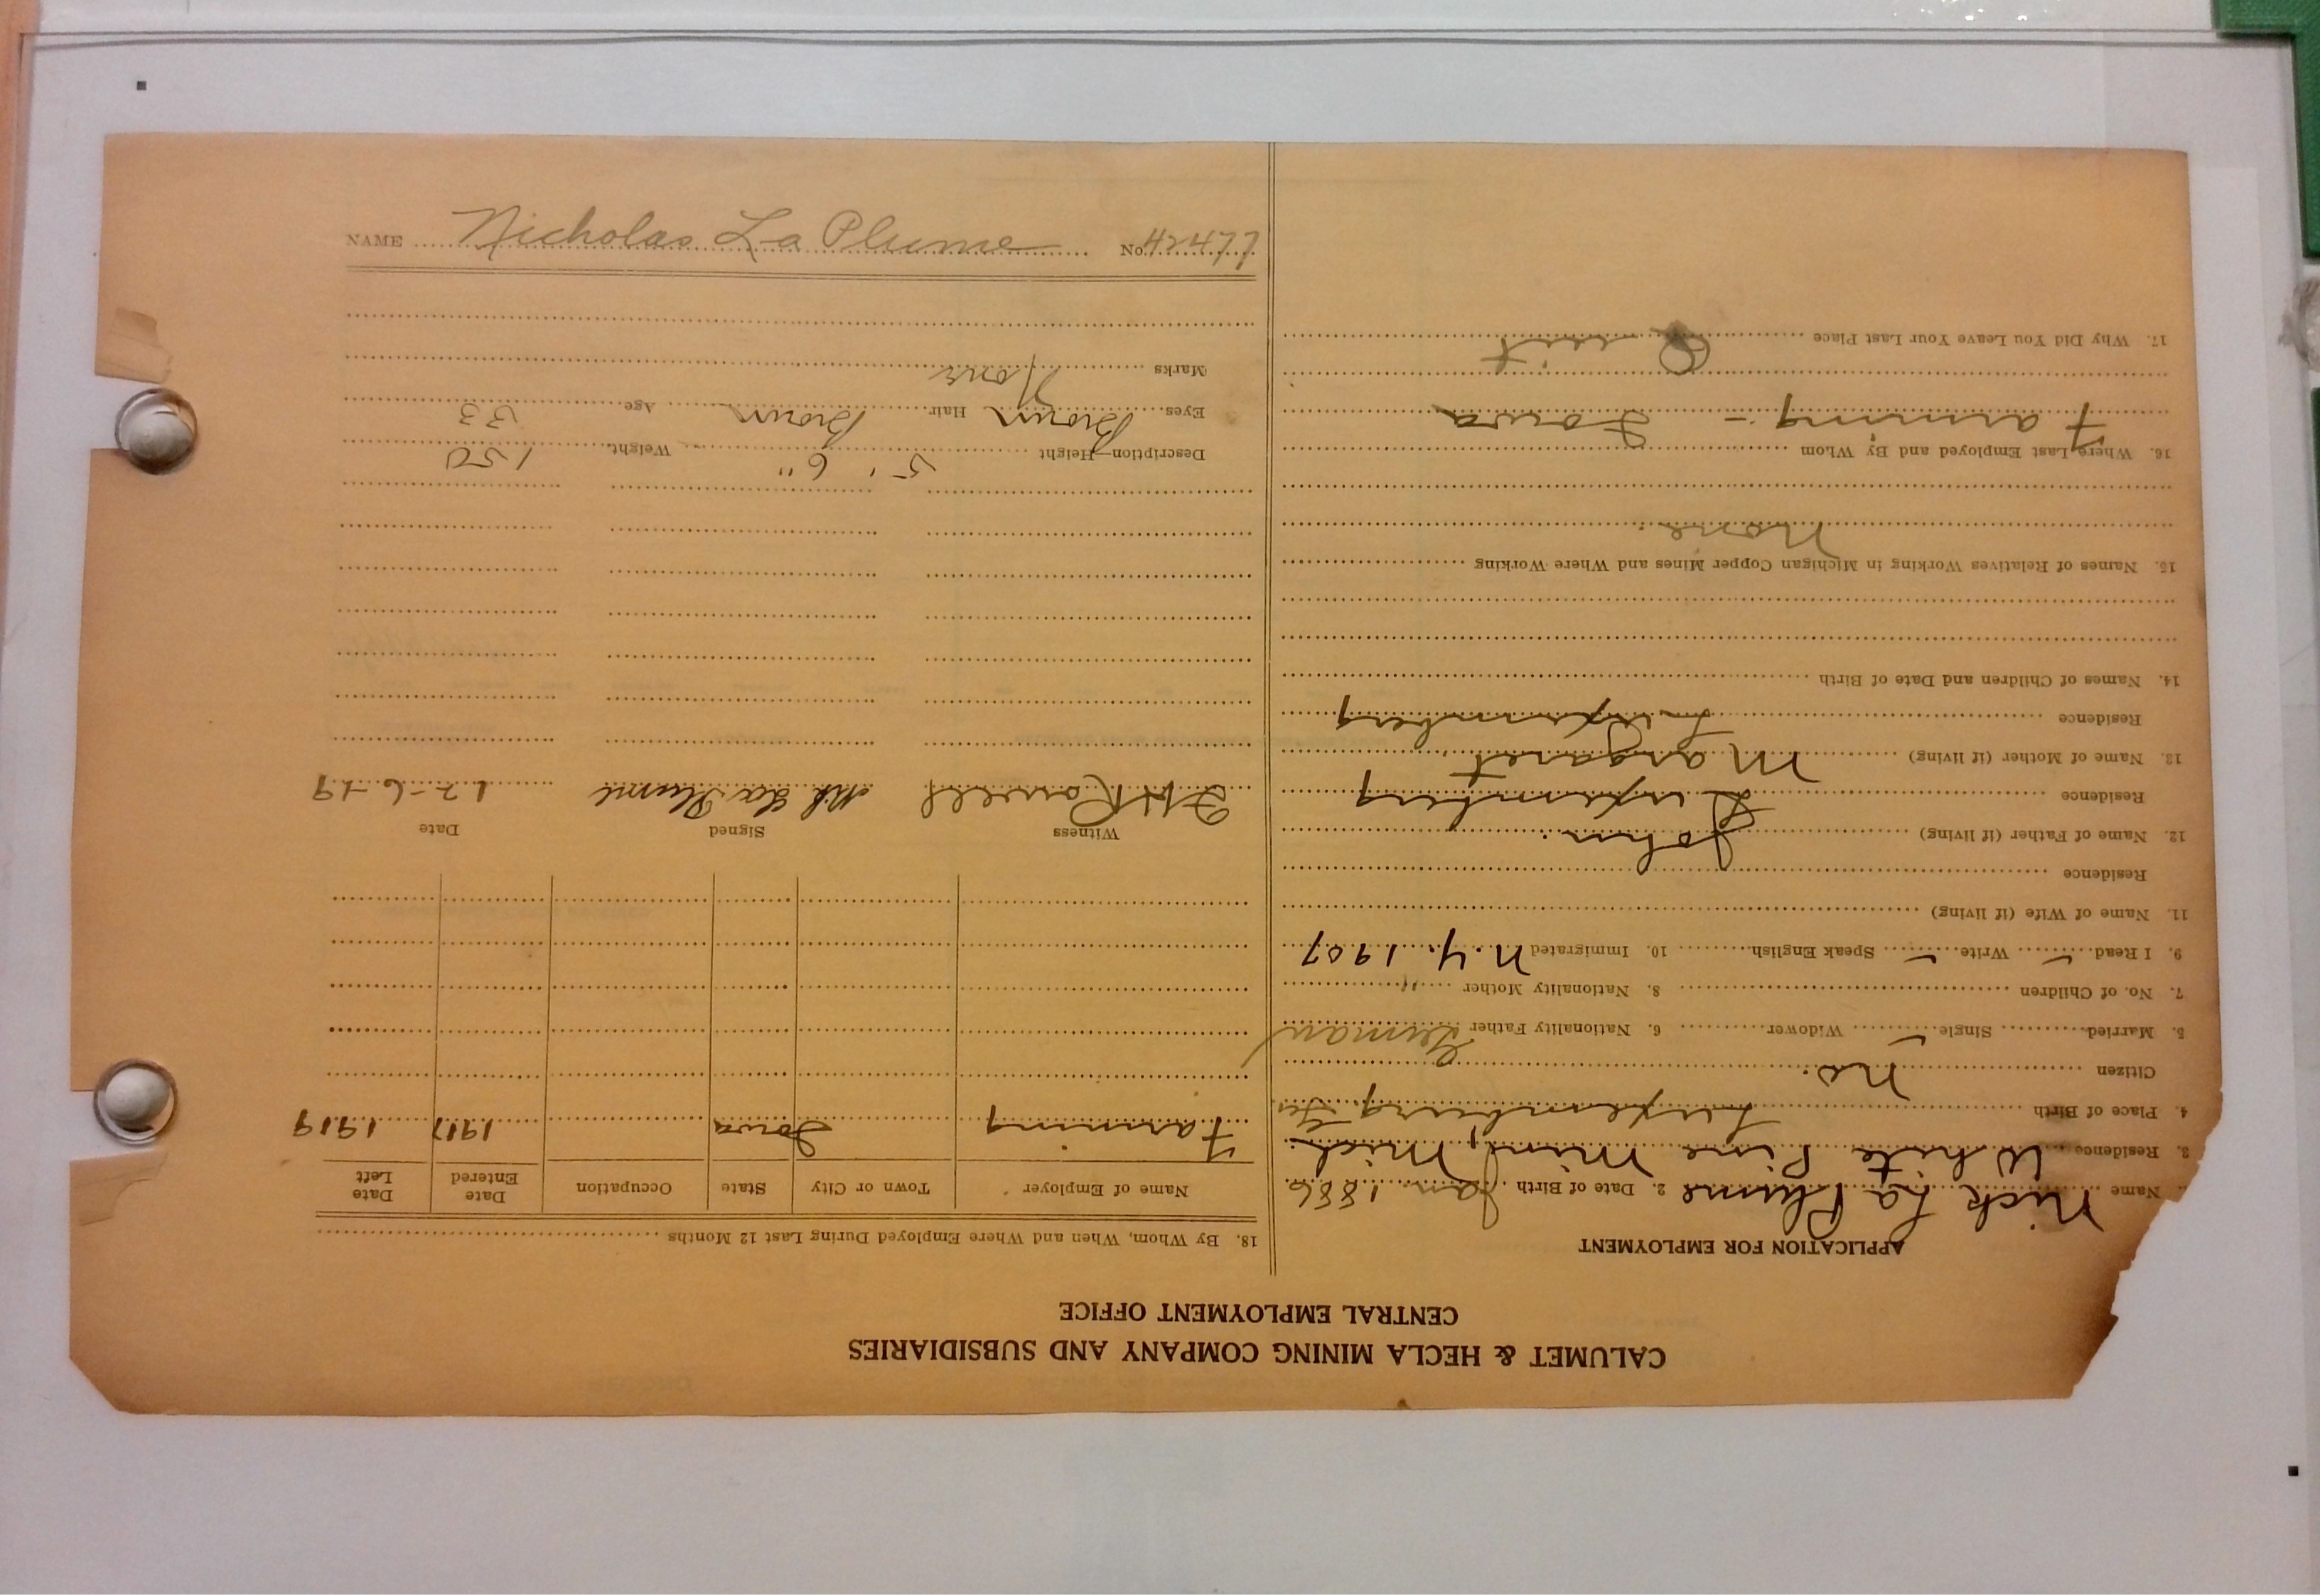 CALUMET & HECLA MINING COMPANY AND SUBSIDIARIES
CENTRAL EMPLOYMENT OFFICE
APPLICATION FOR EMPLOYMENT
Name Nick La Plume 2. Date of Birth Jan. 1886
3. Residence White Pine Mine, Mich.
4. Place of Birth Luxemburg
Citizen No.
5. Married Single ✓ Widower 6. Nationality Father German
7. No. of Children 8. Nationality Mother "
9. I Read ✓ Write ✓ Speak English 10. Immigrated N.Y. 1907
11. Name of Wife (if living)
Residence
12. Name of Father (if living) John
Residence Luxemburg
13. Name of Mother (if living) Margaret
Residence Luxemburg
14. Names of Children and Date of Birth
15. Names of Relatives Working in Michigan Copper Mines and Where Working
None
16. Where Last Employed and By Whom
Farming - Iowa
17. Why Did You Leave Your Last Place Quit
18. By Whom, When and Where Employed During Last 12 Months
Name of Employer Town or City State Occupation Date Entered Date Left
Farming Iowa 1917 1919
Witness Signed Date
Rowell Nik La Plume 12-6-19
Description—Height 5' 6" Weight 150
Eyes Brown Hair Brown Age 33
Marks None
NAME Nicholas La Plume No. 42477